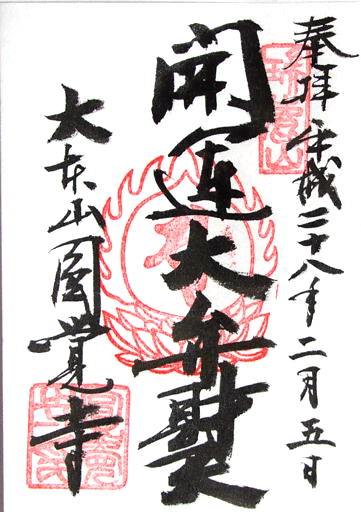 奉拝 平成二十八年二月五日
開運大弁財天
大本山円覚寺
瑞鹿山